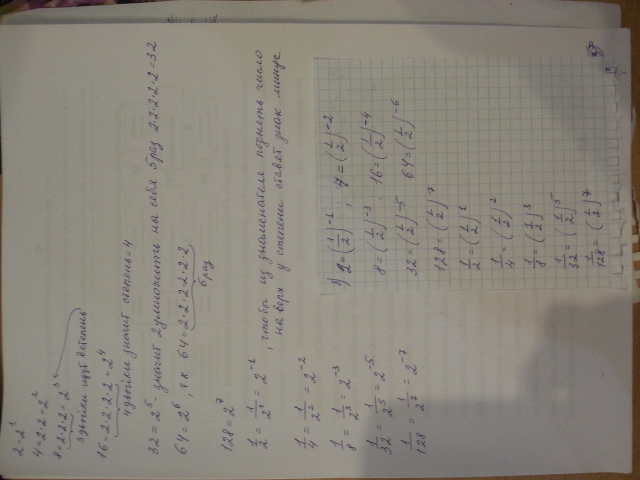 2=2¹
4=2·2=2²
8=2·2·2=2³
3 двойки идёт в степень
16=2·2·2·2=2⁴
4 двойки значит степень=4
32=2⁵ - значит 2 умножить на себя 5 раз 2·2·2·2·2=32
64=2⁶, т.к 64=2·2·2·2·2·2
6 раз
128=2⁷
1/2 = 1/2¹ = 2⁻¹, чтобы из знаменателя поднять число
на верх у степени ставят знак минус
1/4 = 1/2² = 2⁻²
1/8 = 1/2³ = 2⁻³
1/32 = 1/2⁵ = 2⁻⁵
1/128 = 1/2⁷ = 2⁻⁷
2=(1/2)⁻¹; 4=(1/2)⁻²
8=(1/2)⁻³; 16=(1/2)⁻⁴
32=(1/2)⁻⁵ 64=(1/2)⁻⁶
128=(1/2)⁷
1/2=(1/2)¹
1/4=(1/2)²
1/8=(1/2)³
1/32=(1/2)⁵
1/128=(1/2)⁷